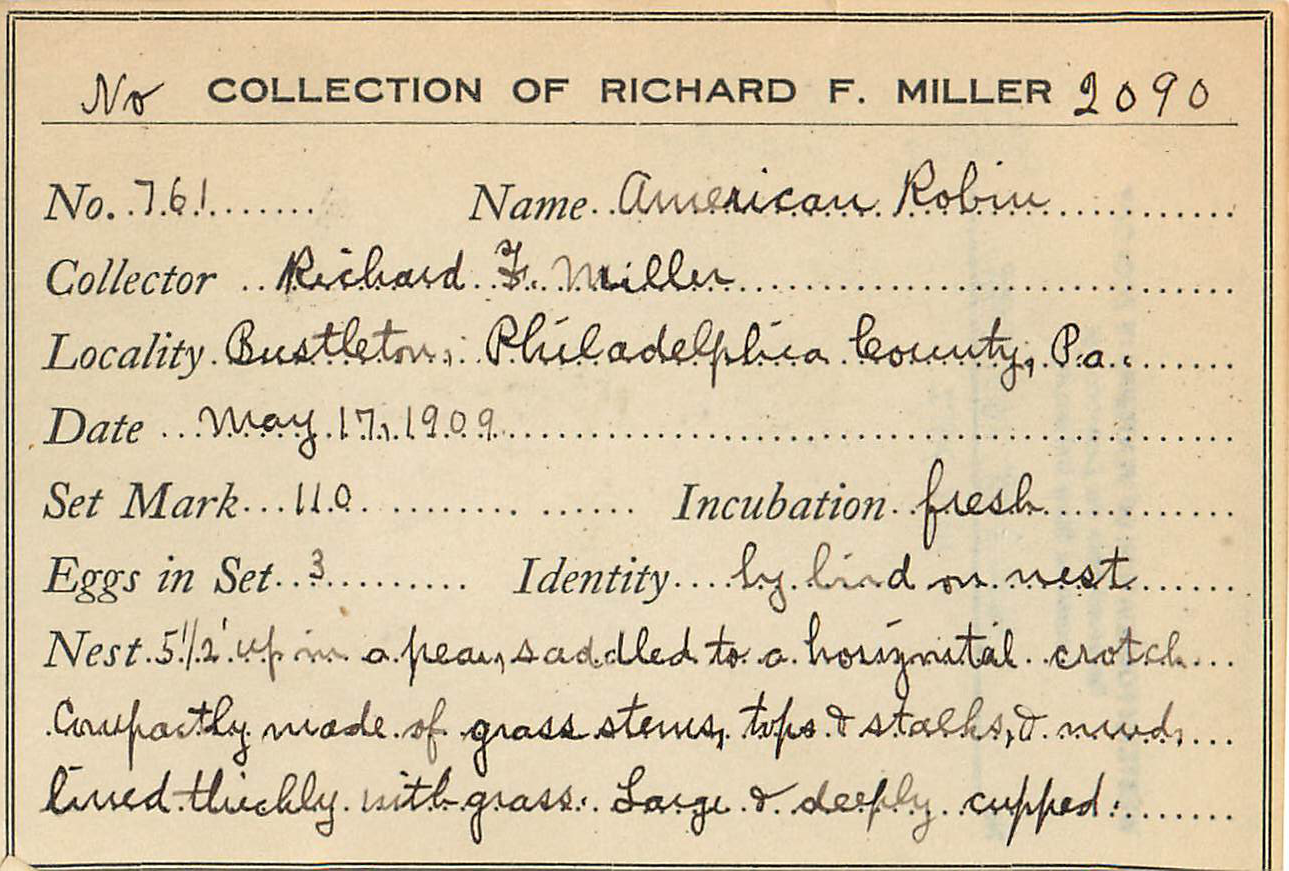 No COLLECTION OF RICHARD F. MILLER 2090
No. 761 Name American Robin
Collector Richard F. Miller
Locality Bustleton, Philadelphia County, Pa.
Date May 17, 1909
Set Mark 110 Incubation fresh
Eggs in Set 3 Identity by bird on nest
Nest 5 1/2' up in a pear, saddled to a horizontal crotch
Compactly made of grass stems, tops & stalks, & mud,
lined thickly with grass. Large & deeply cupped.